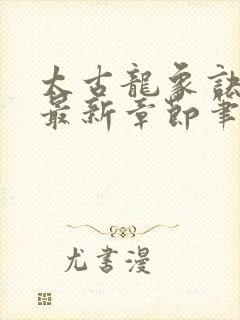 太古龍象訣
最新章節筆
尤書漫